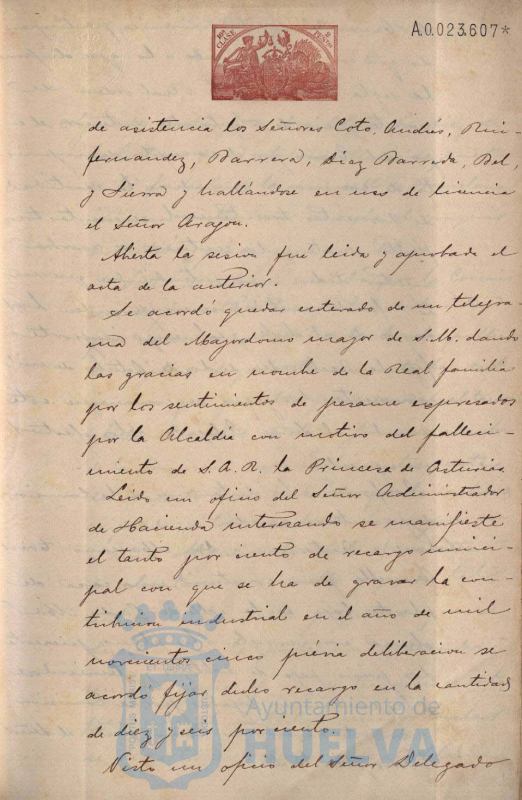 10ª CLASE 2 PESETAS
A.0.023.607*
de asistencia los Señores Coto, Andrés,
fernandez, Barrera, Diaz Barreda, Bel,
y Sierra y hallándose en uso de licencia
el Señor Aragon.
Abierta la sesion fué leida y aprobada el
acta de la anterior.
Se acordó quedar enterado de un telegra-
ma del Mayordomo mayor de S.M. dando
las gracias en nombre de la Real familia
por los sentimientos de pésame expresados
por la Alcaldia con motivo del falleci-
miento de S.A.R. la Princesa de Asturias
Leido un oficio del Señor Administrador
de Hacienda interesando se manifieste
el tanto por ciento de recargo munici-
pal con que se ha de gravar la con-
tribucion industrial en el año de mil
novecientos cinco prévia deliberacion se
acordó fijar dicho recargo en la cantidad
de diez y seis por ciento.
Visto un oficio del Señor Delegado
Ayuntamiento de
HUELVA